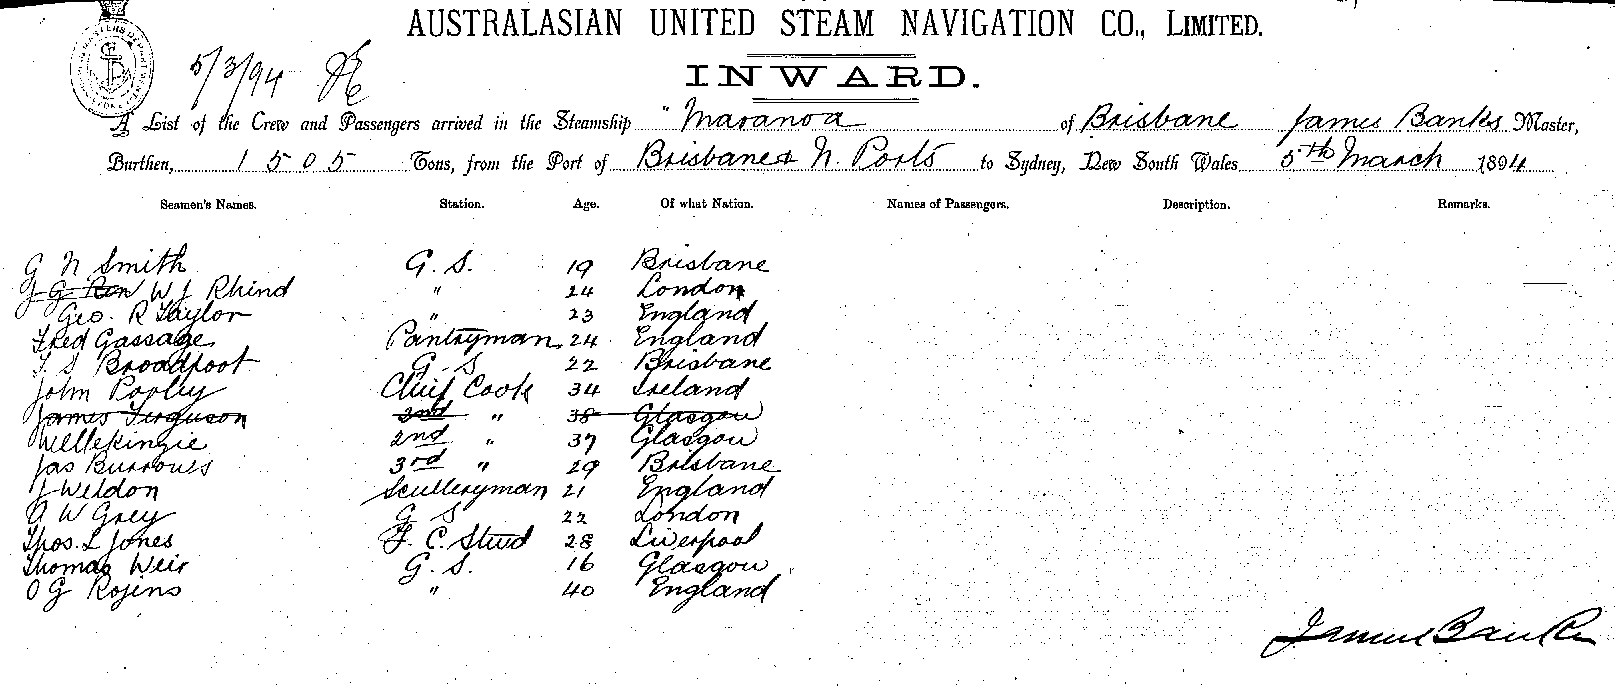 AUSTRALASIAN UNITED STEAM NAVIGATION CO., LIMITED.
5/3/94
INWARD.
A List of the Crew and Passengers arrived in the Steamship "Maranoa of Brisbane James Banks Master,
Burthen, 1505 Tons, from the Port of Brisbane & N. Ports to Sydney, New South Wales 5th March 1894
Seamen's Names. Station. Age. Of what Nation. Names of Passengers. Description. Remarks.
G N Smith G. S. 19 Brisbane
W J Rhind " 24 London
Geo. R Taylor " 23 England
Fred Gassage Pantryman 24 England
T. S Broadfoot G. S 22 Brisbane
John Pooley Chief Cook 34 Ireland
James Ferguson 2nd " 38 Glasgow
2nd " 37 Glasgow
Jas Burrows 3rd " 29 Brisbane
J Weldon Sculleryman 21 England
A W Grey G S 22 London
Thos. L Jones F. C. Stwd 28 Liverpool
Thomas Weir G. S. 16 Glasgow
O G Rojins " 40 England
James Banks